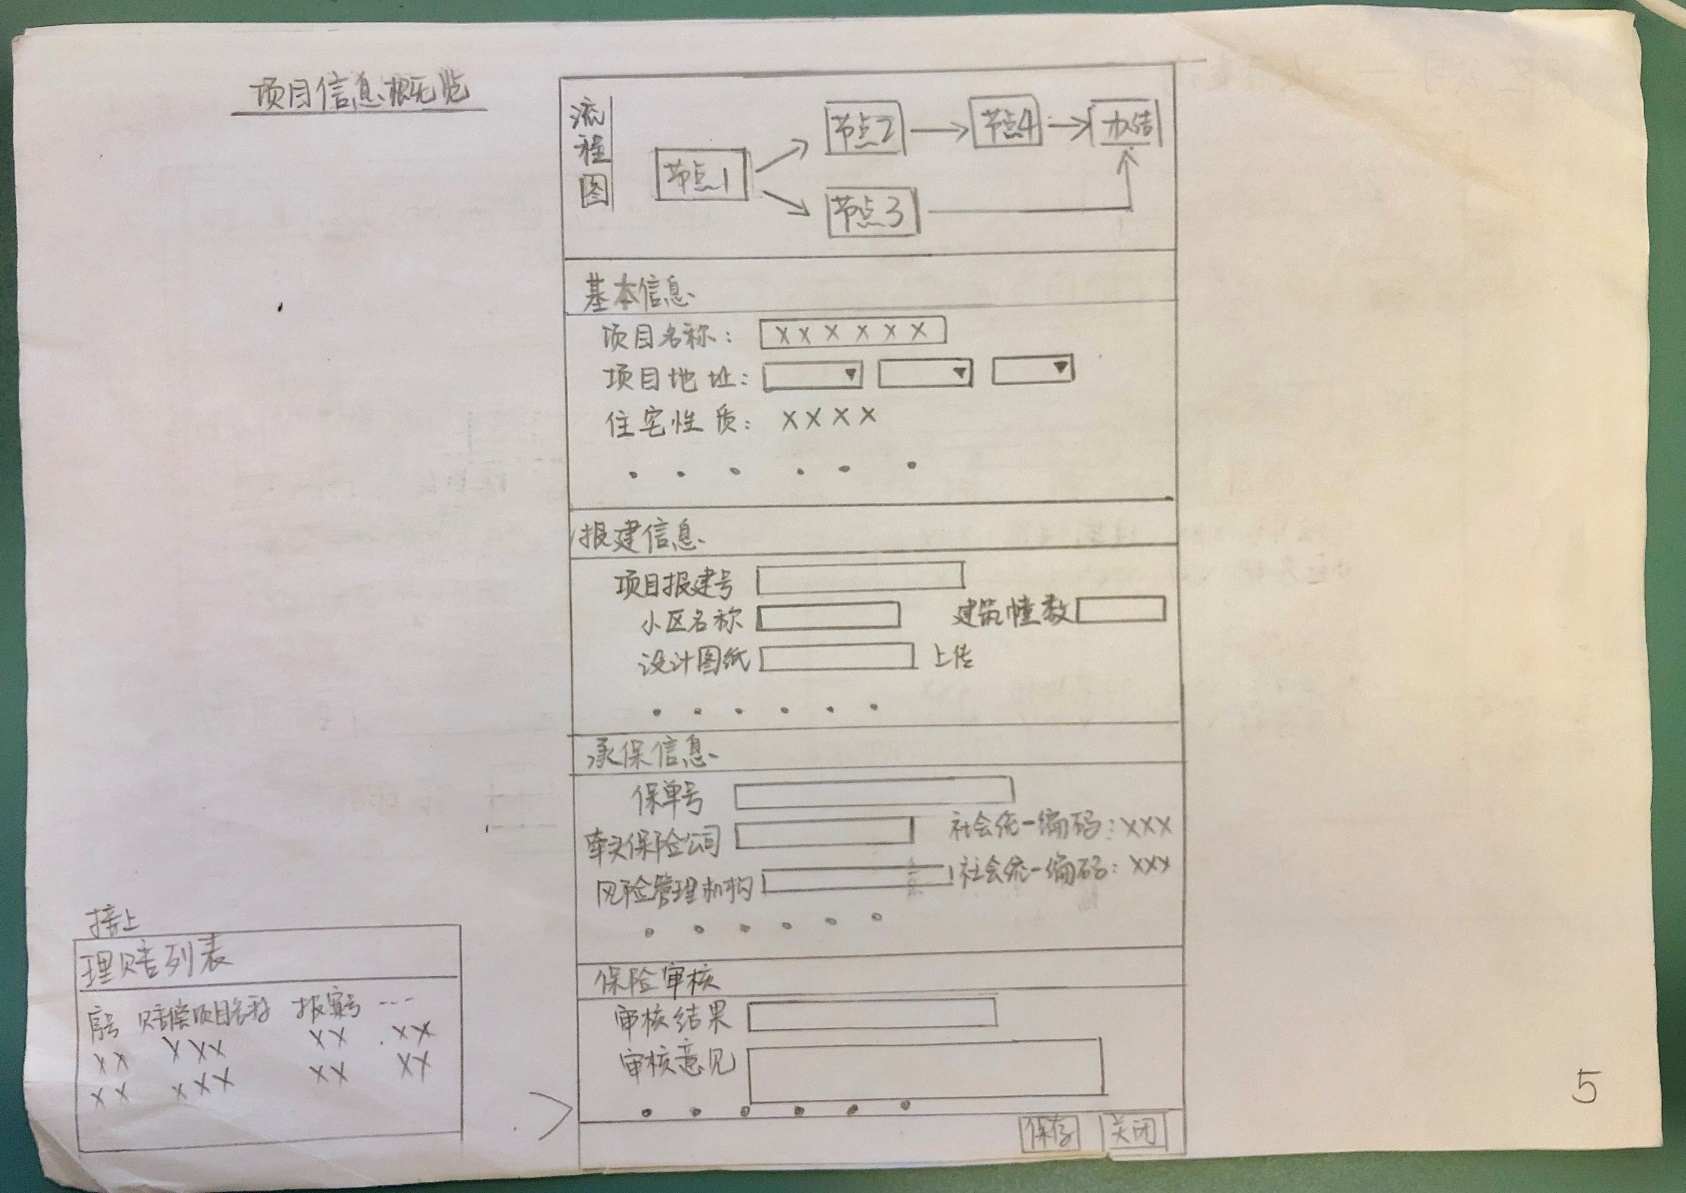 项目信息概览
流程图
节点1
节点2
节点4
办结
节点3
基本信息
项目名称: XXXXXX
项目地址:
住宅性质: XXXX
报建信息
项目报建号
小区名称 建筑幢数
设计图纸 上传
承保信息
保单号
牵头保险公司 社会统一编码: XXX
风险管理机构 社会统一编码: XXX
保险审核
审核结果
审核意见
保存 关闭
接上
理赔列表
序号 赔偿项目名称 报案号 ---
XX XXX XX XX
XX XXX XX XX
5